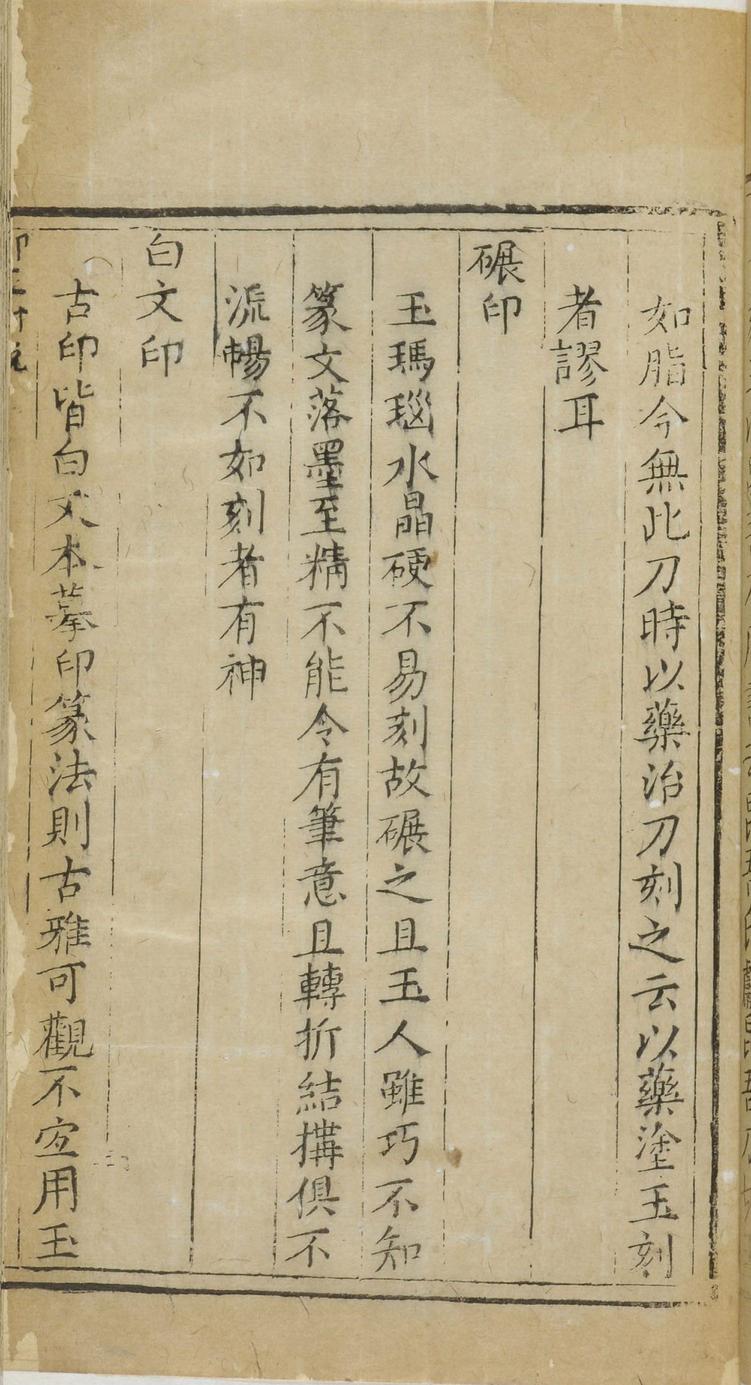 如脂今無此刀時以藥治刀刻之云以藥塗玉刻
者謬耳
碾印
玉瑪瑙水晶硬不易刻故碾之且玉人雖巧不知
篆文落墨至精不能令有筆意且轉折結搆俱不
流暢不如刻者有神
白文印
古印皆白文本摹印篆法則古雅可觀不宜用玉